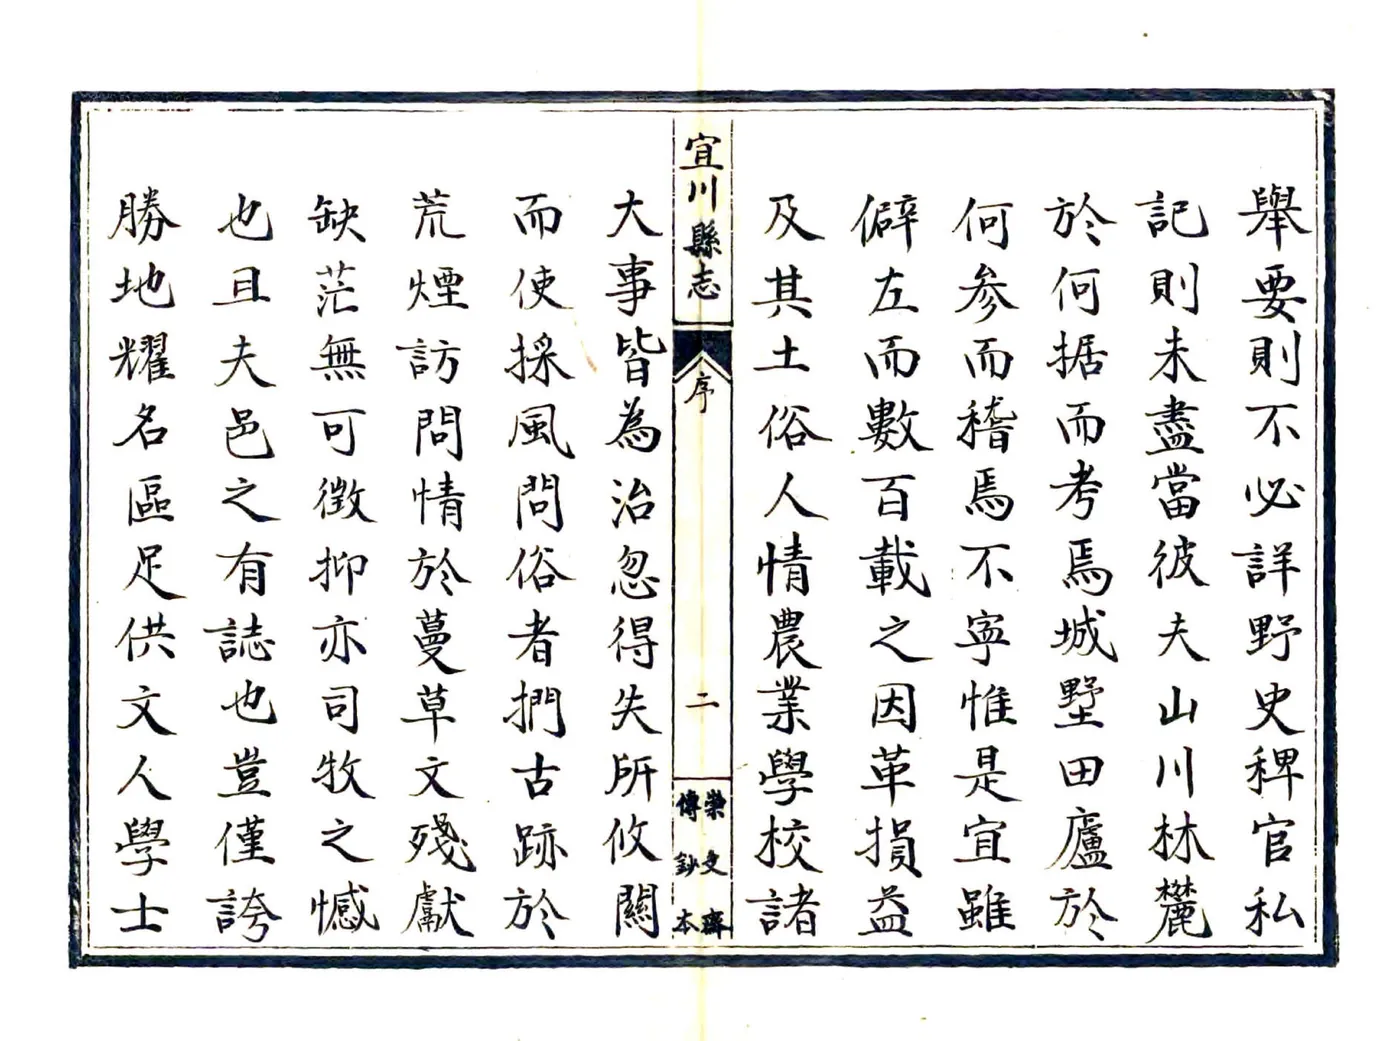 舉要則不必詳野史稗官私
記則未盡當彼夫山川林麓
於何据而考焉城墅田廬於
何參而稽焉不寧惟是宜雖
僻左而數百載之因革損益
及其土俗人情農業學校諸
宜川縣志
序
二
崇文齋
傳鈔本
大事皆為治忽得失所攸關
而使採風問俗者捫古跡於
荒煙訪問情於蔓草文殘獻
缺茫無可徵抑亦司牧之憾
也且夫邑之有誌也豈僅誇
勝地耀名區足供文人學士